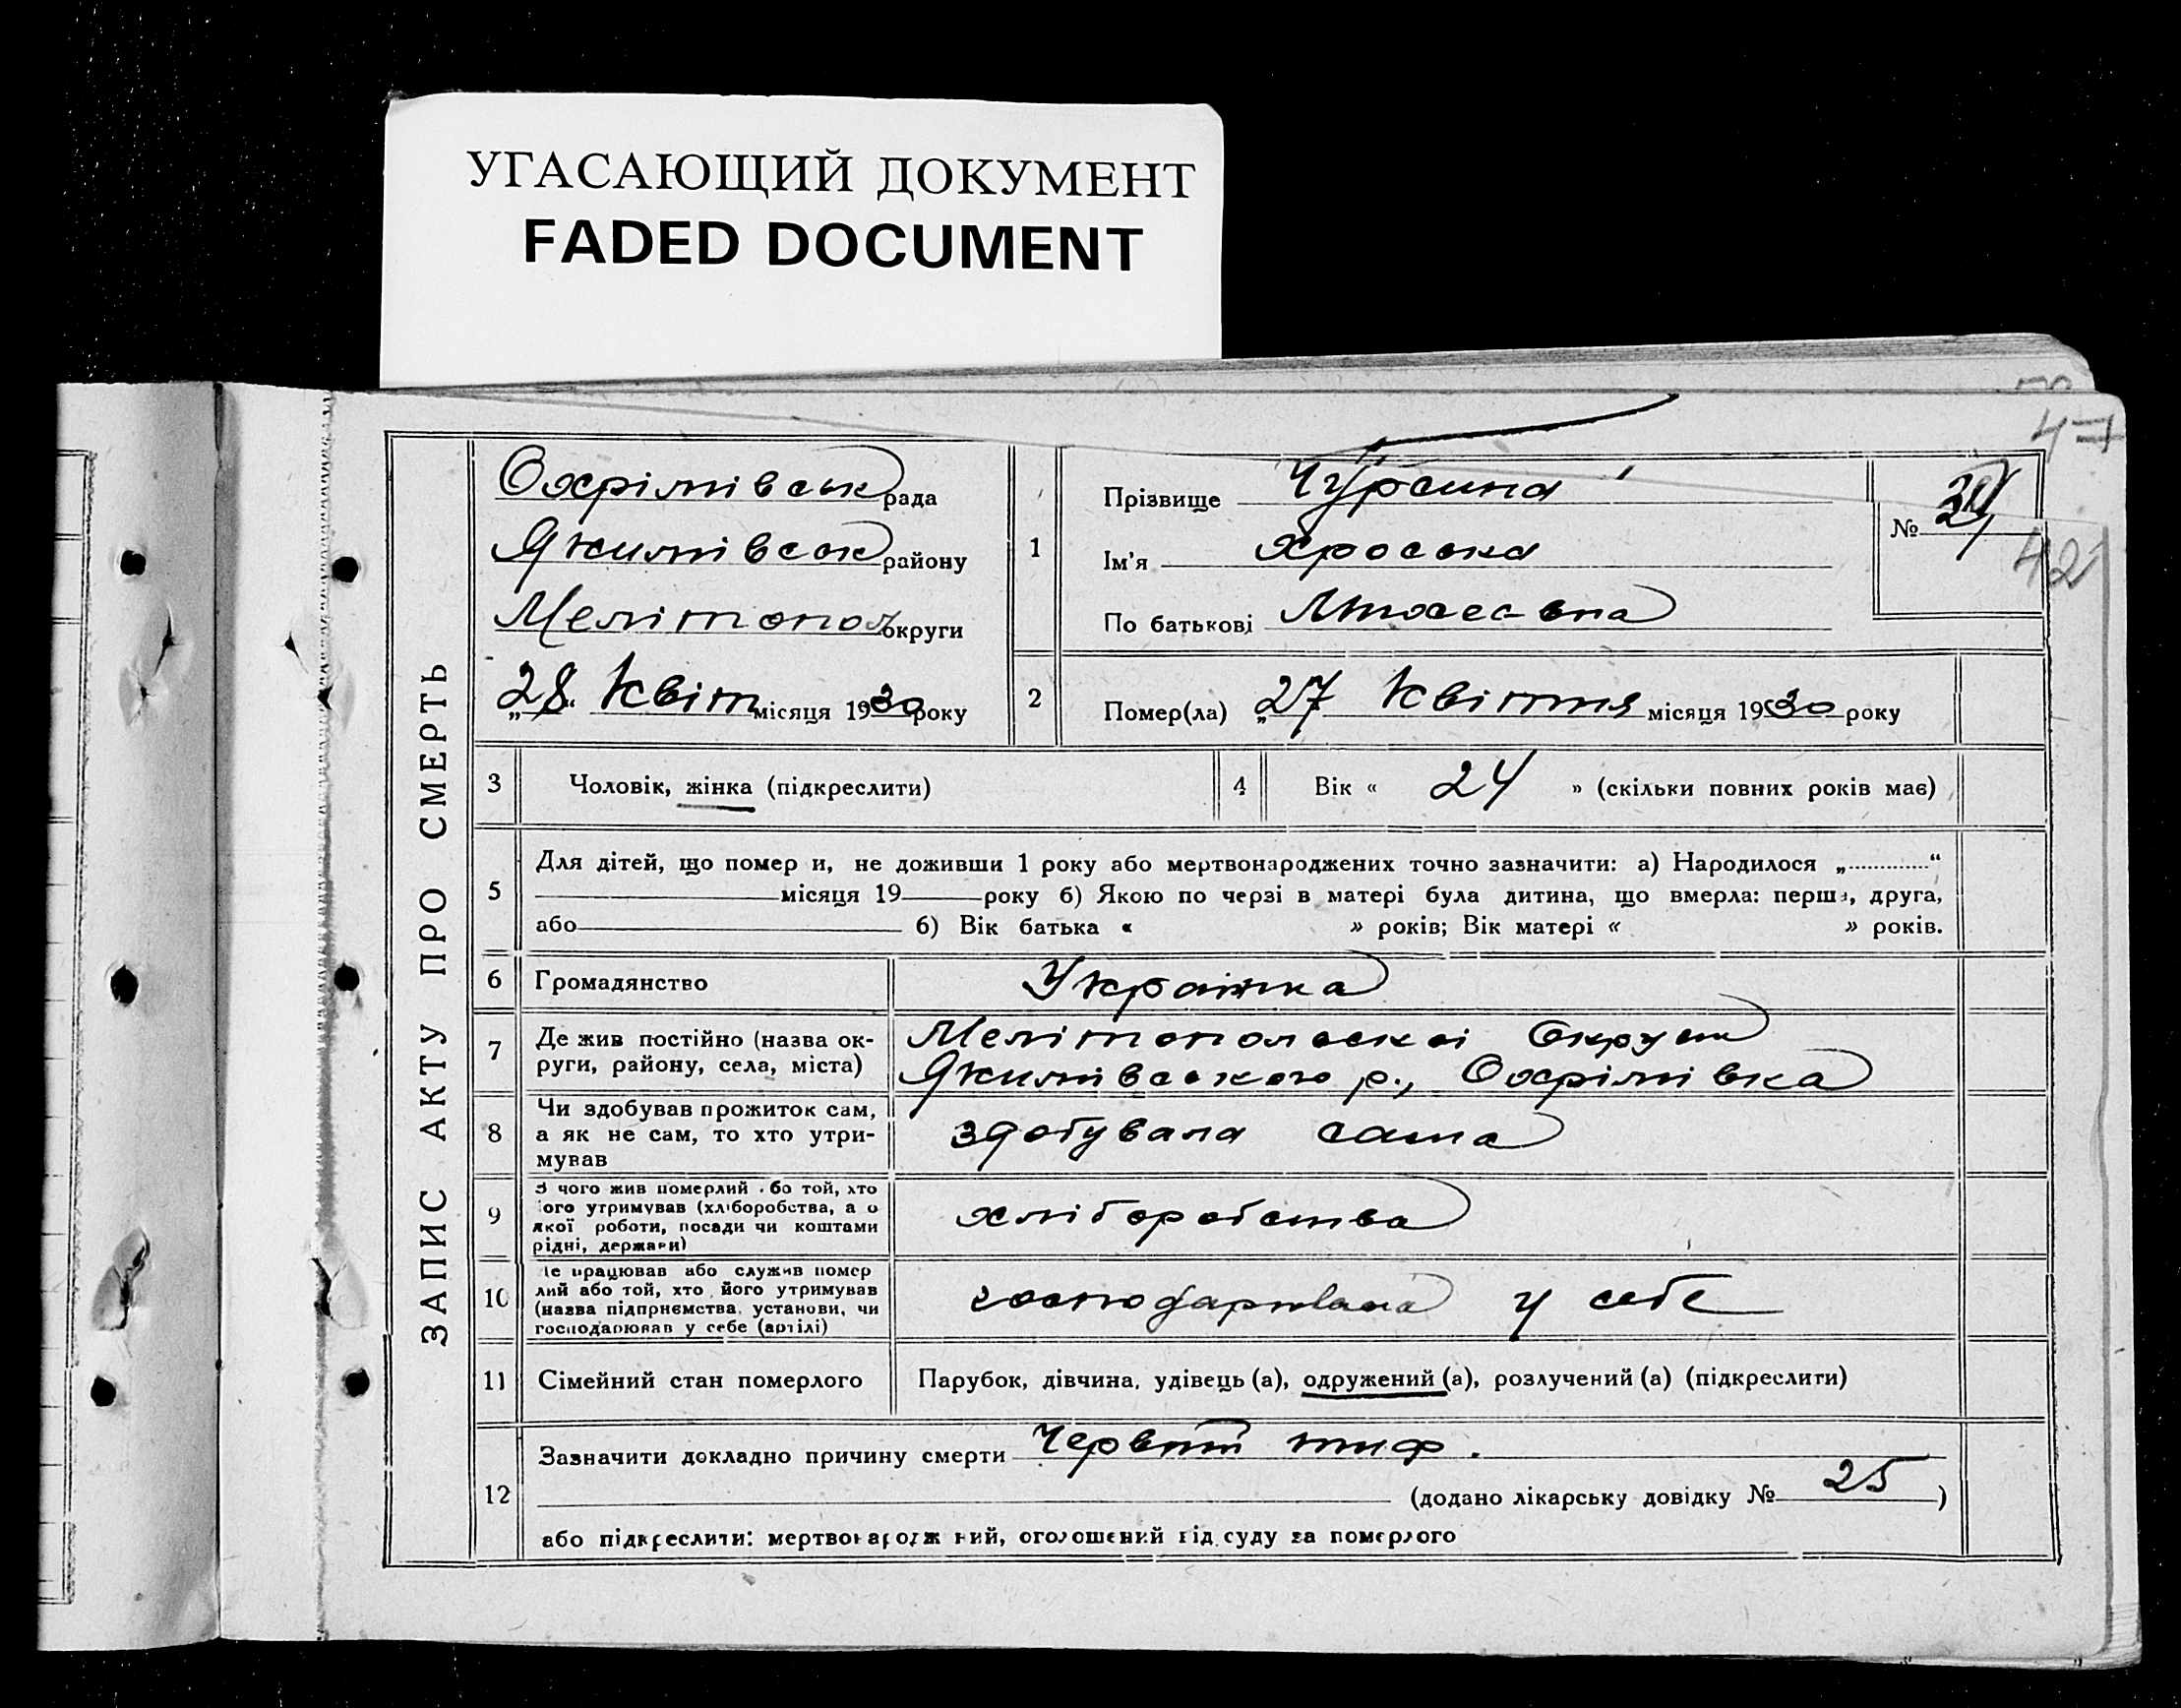 УГАСАЮЩИЙ ДОКУМЕНТ
FADED DOCUMENT
47
42
ЗАПИС АКТУ ПРО СМЕРТЬ
Охрімівськ рада
Якимівськ району
Мелітопол округи
„28“ Квіт місяця 1930 року
1
Прізвище Чурсина
Ім'я Хроська
По батькові
№
2 Помер(ла) „27 Квітня місяця 1930 року
3 Чоловік, жінка (підкреслити)
4 Вік « 24 » (скільки повних років має)
5 Для дітей, що помер и, не доживши 1 року або мертвонароджених точно зазначити: а) Народилося „ “
місяця 19 року б) Якою по черзі в матері була дитина, що вмерла: перша, друга,
або б) Вік батька « » років; Вік матері « » років.
6 Громадянство Українка
7 Де жив постійно (назва ок-
руги, району, села, міста)
Мелітопольскої Округи
Якимівського р., Охрімівка
8 Чи здобував прожиток сам,
а як не сам, то хто утри-
мував
здобувала сама
9 З чого жив померлий бо той, хто
ого утримував (хліборобства, а о
якої роботи, посади чи коштами
рідні, держави)
хліборобства
10 Де працював або служив помер
лий або той, хто його утримував
(назва підприємства, установи, чи
господарював у себе (артілі)
господарювала у себе
11 Сімейний стан померлого Парубок, дівчина, удівець (а), одружений (а), розлучений (а) (підкреслити)
12 Зазначити докладно причину смерти Червний тиф.
(додано лікарську довідку № 25)
або підкреслити: мертвонародж ний, оголошений від суду за померлого